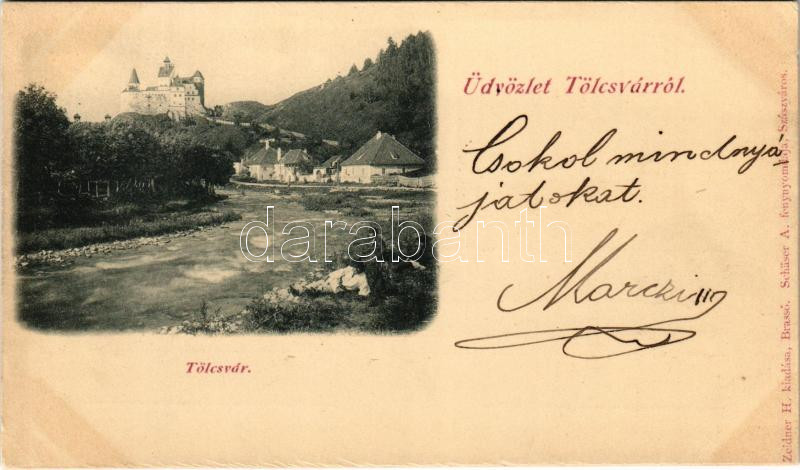 Üdvözlet Tölcsvárról.
Csokol mindnyá
jatokat.
Marczi
darabanth
Tölcsvár.
Zeidner H. kiadása, Brassó. Schäser A. fénynyomdája, Szászváros.